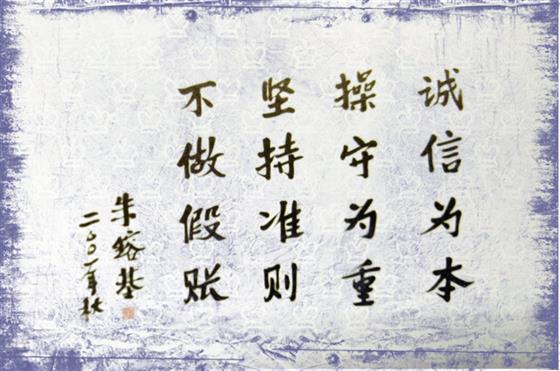 诚信为本
操守为重
坚持准则
不做假账
朱镕基
二〇〇一年秋